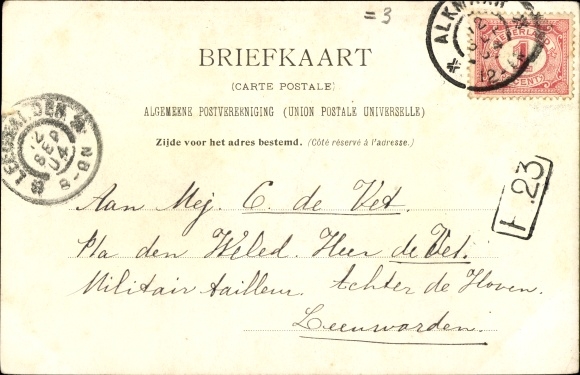 = 3
ALKMAAR
NEDERLAND
1
CENT
BRIEFKAART
(CARTE POSTALE)
ALGEMEENE POSTVEREENIGING (UNION POSTALE UNIVERSELLE)
Zijde voor het adres bestemd. (Côté réservé à l'adresse.)
LEEUWARDEN
SEP
04
8-9N
Aan Mej. C. de Vet.
P/a den Weled. Heer de Vet.
Militair tailleur. Achter de Hoven.
Leeuwarden.
F.23